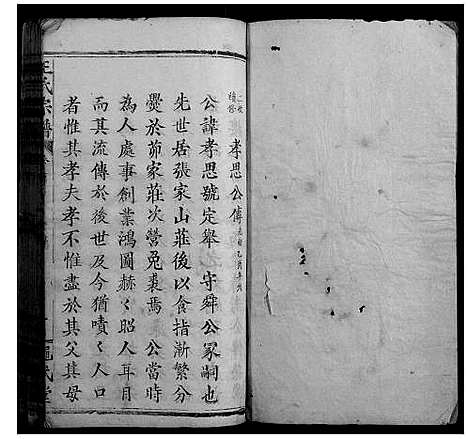 二次
續修
孝思公傳
公諱孝思號定舉 守舜公冢嗣也
先世居張家山莊後以食指漸繁分
爨於茆家莊次營兔裘焉 公當時
為人處事創業鴻圖赫〻昭人耳目
而其流傳於後世及今猶嘖〻人口
者惟其孝夫孝不惟盡於其父其母
王氏宗譜